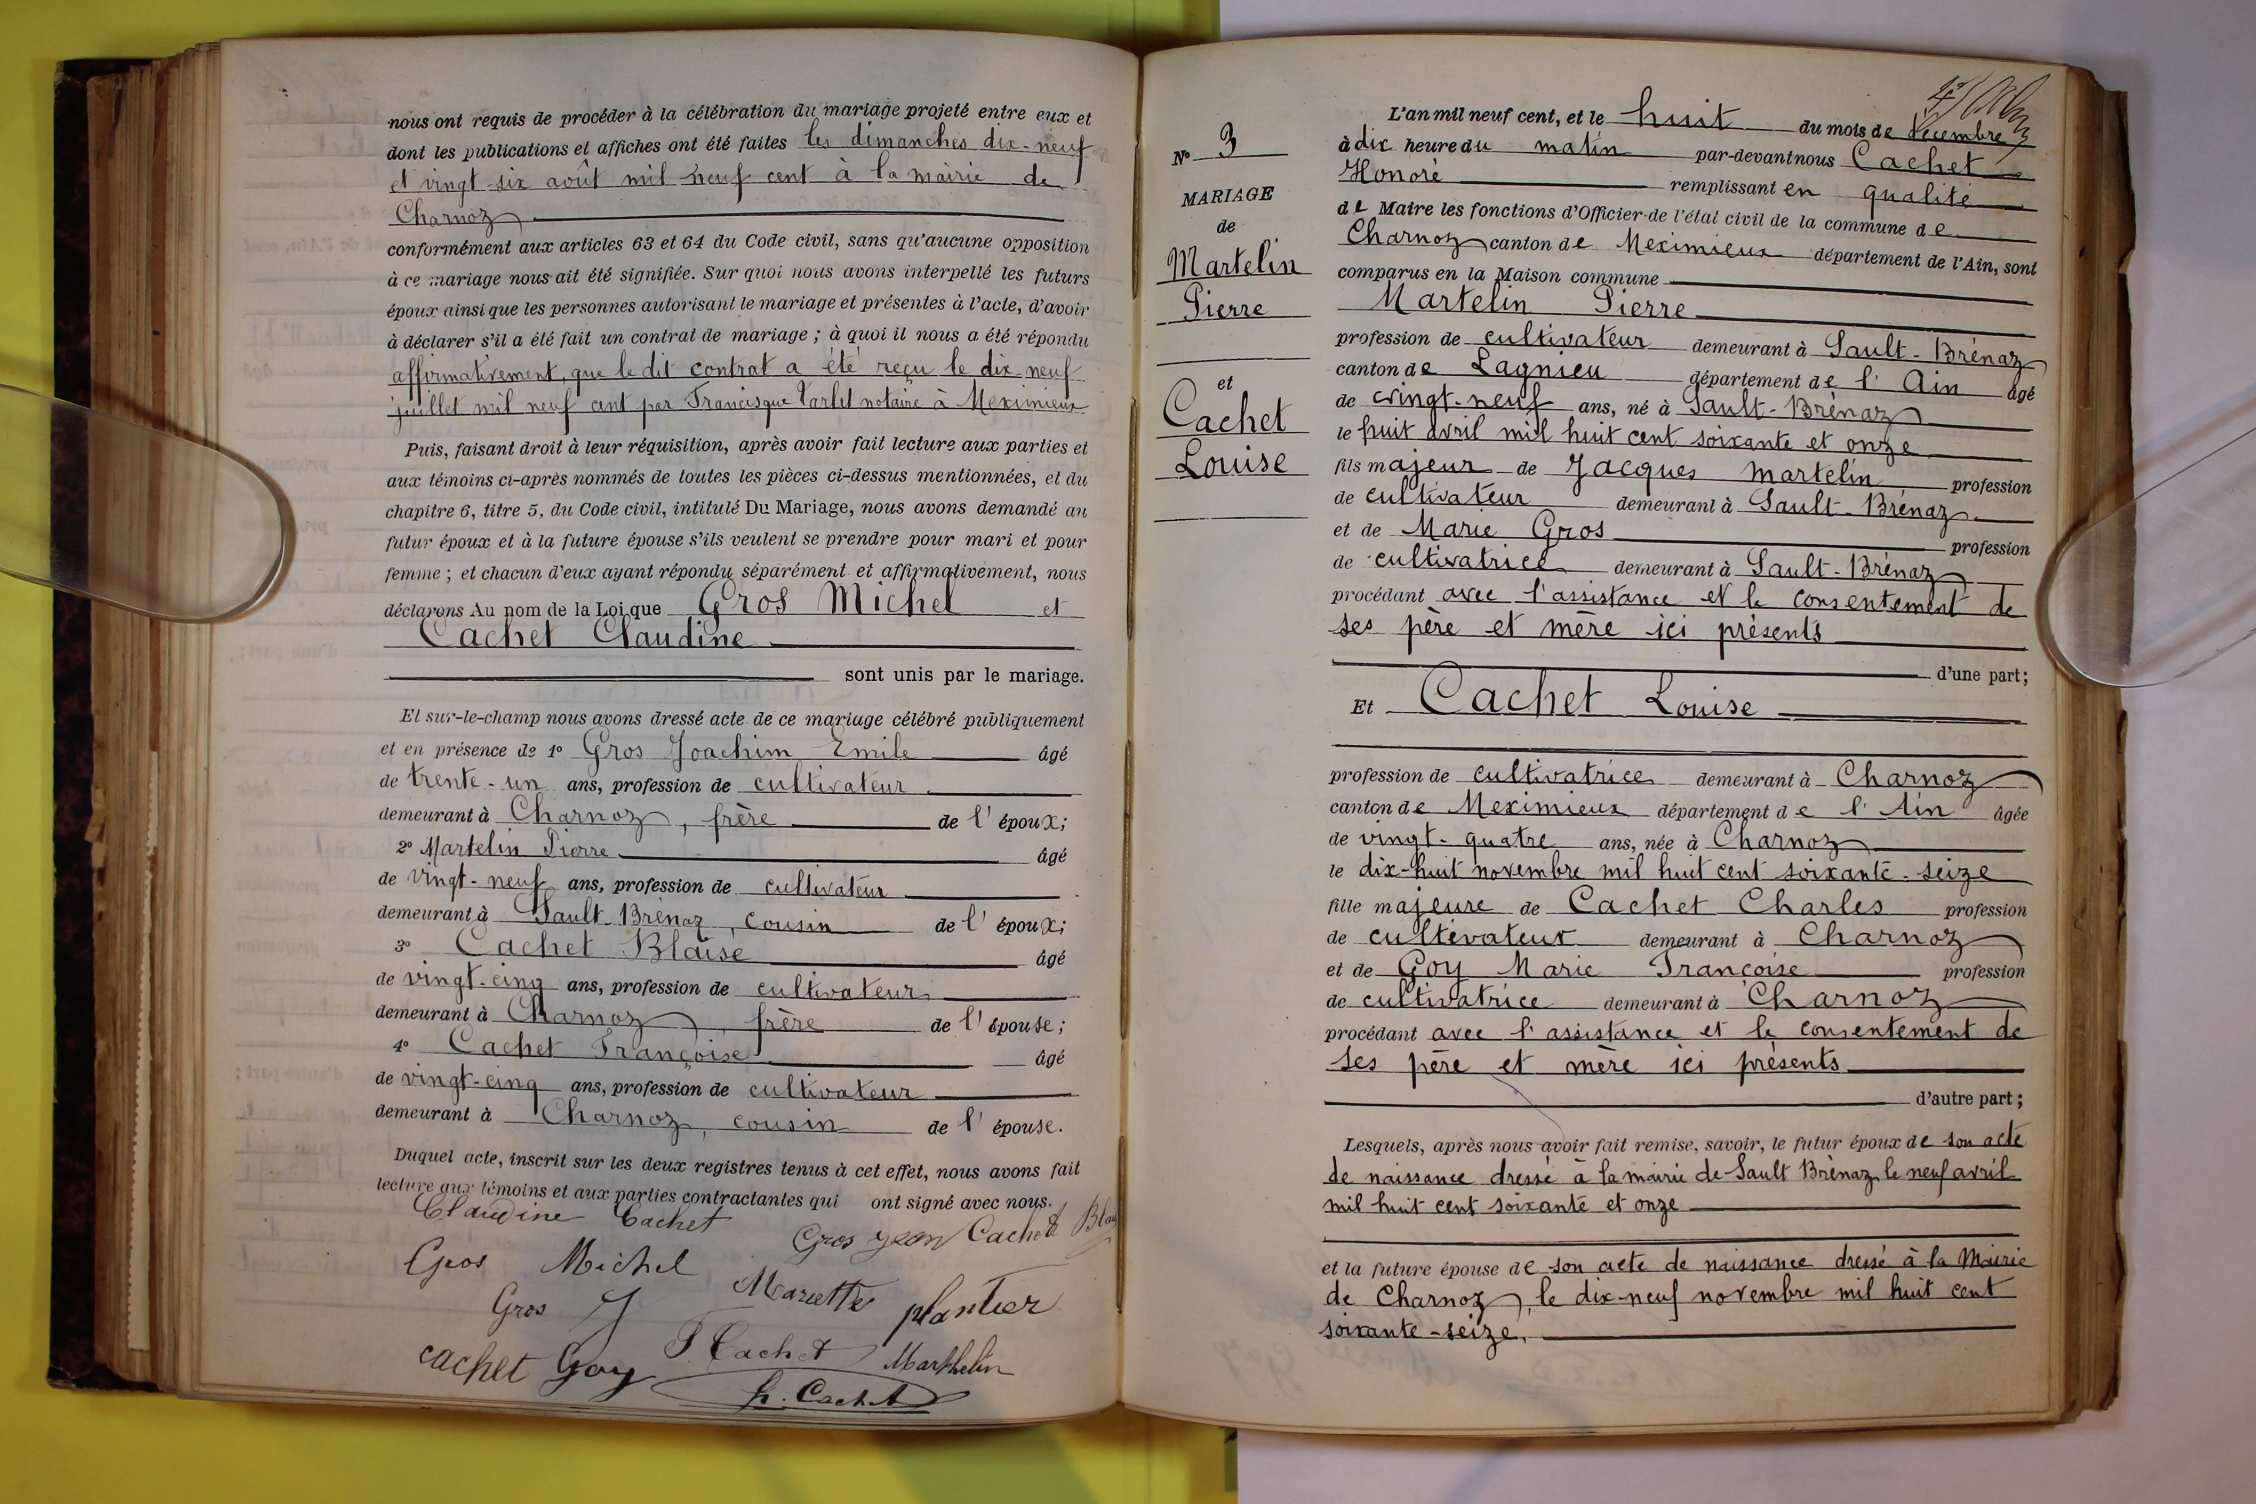 nous ont requis de procéder à la célébration du mariage projeté entre eux et
dont les publications et affiches ont été faites les dimanches dix-neuf
et vingt-six août mil neuf cent à la mairie de
Charnoz
conformément aux articles 63 et 64 du Code civil, sans qu'aucune opposition
à ce mariage nous ait été signifiée. Sur quoi nous avons interpellé les futurs
époux ainsi que les personnes autorisant le mariage et présentes à l'acte, d'avoir
à déclarer s'il a été fait un contrat de mariage ; à quoi il nous a été répondu
affirmativement, que le dit contrat a été reçu le dix neuf
juillet mil neuf cent par Francisque notaire à Meximieux
Puis, faisant droit à leur réquisition, après avoir fait lecture aux parties et
aux témoins ci-après nommés de toutes les pièces ci-dessus mentionnées, et du
chapitre 6, titre 5, du Code civil, intitulé Du Mariage, nous avons demandé au
futur époux et à la future épouse s'ils veulent se prendre pour mari et pour
femme ; et chacun d'eux ayant répondu séparément et affirmativement, nous
déclarons Au nom de la Loi que Gros Michel et
Cachet Claudine
sont unis par le mariage.
Et sur-le-champ nous avons dressé acte de ce mariage célébré publiquement
et en présence de 1° Gros Joachim Emile âgé
de trente-un ans, profession de cultivateur
demeurant à Charnoz, frère de l'époux;
2° Martelin Pierre âgé
de vingt-neuf ans, profession de cultivateur
demeurant à Sault-Brénaz, cousin de l'époux;
3° Cachet Blaise âgé
de vingt-cinq ans, profession de cultivateur
demeurant à Charnoz, frère de l'épouse;
4° Cachet Françoise âgé
de vingt-cinq ans, profession de cultivateur
demeurant à Charnoz, cousin de l'épouse.
Duquel acte, inscrit sur les deux registres tenus à cet effet, nous avons fait
lecture aux témoins et aux parties contractantes qui ont signé avec nous.
Claudine Cachet Gros Jean Cachet Blaise
Gros Michel Mariette plantier
Gros J
cachet Goy F Cachet Marthelin
h. Cachet
N° 3
MARIAGE
de
Martelin
Pierre
et
Cachet
Louise
L'an mil neuf cent, et le huit du mois de décembre
à dix heure du matin par-devant nous Cachet
Honoré remplissant en qualité
de Maire les fonctions d'Officier de l'état civil de la commune de
Charnoz canton de Meximieux département de l'Ain, sont
comparus en la Maison commune
Martelin Pierre
profession de cultivateur demeurant à Sault-Brénaz
canton de Lagnieu département de l'Ain âgé
de vingt-neuf ans, né à Sault-Brénaz
le huit avril mil huit cent soixante et onze
fils majeur de Jacques Martelin profession
de cultivateur demeurant à Sault-Brénaz
et de Marie Gros profession
de cultivatrice demeurant à Sault-Brénaz
procédant avec l'assistance et le consentement de
ses père et mère ici présents
d'une part;
Et Cachet Louise
profession de cultivatrice demeurant à Charnoz
canton de Meximieux département de l'Ain âgée
de vingt-quatre ans, née à Charnoz
le dix-huit novembre mil huit cent soixante-seize
fille majeure de Cachet Charles profession
de cultivateur demeurant à Charnoz
et de Goy Marie Françoise profession
de cultivatrice demeurant à Charnoz
procédant avec l'assistance et le consentement de
ses père et mère ici présents
d'autre part;
Lesquels, après nous avoir fait remise, savoir, le futur époux de son acte
de naissance dressé à la mairie de Sault Brénaz le neuf avril
mil huit cent soixante et onze
et la future épouse de son acte de naissance dressé à la Mairie
de Charnoz, le dix-neuf novembre mil huit cent
soixante-seize,